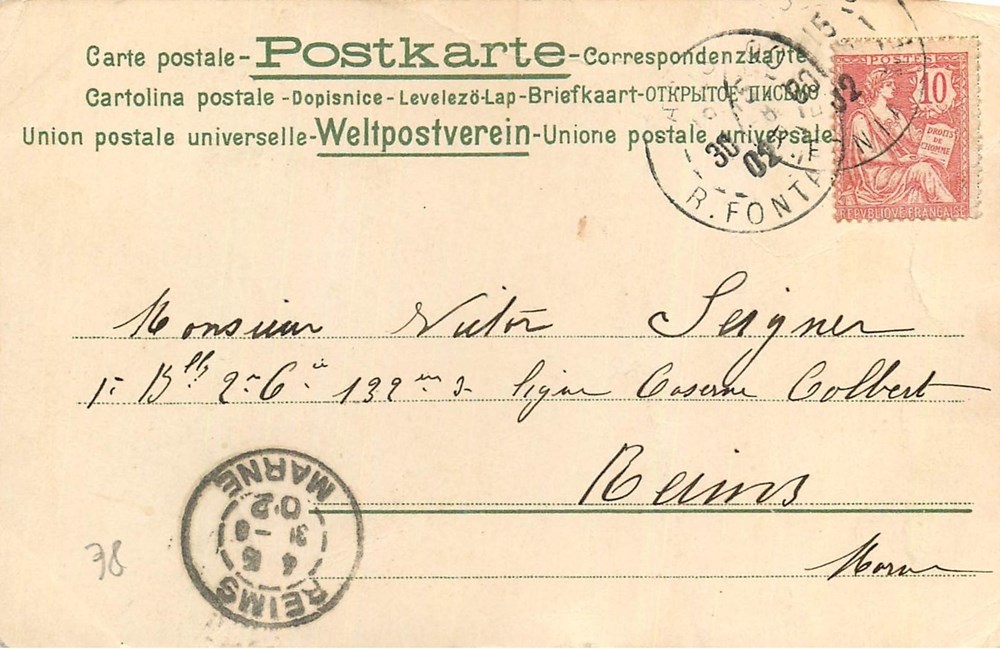 Carte postale - Postkarte - Correspondenzkarte
Cartolina postale - Dopisnice - Levelezö-Lap - Briefkaart - ОТКРЫТОЕ ПИСЬМО
Union postale universelle - Weltpostverein - Unione postale universale
POSTES
10
DROITS DE L'HOMME
REPUBLIQUE FRANÇAISE
30
02
R. FONTAINE
Monsieur Victor Seigner
1er Bon 2e Cie 132me de ligne Caserne Colbert
Reims
Marne
REIMS
4 5
31 -8
02
MARNE
38